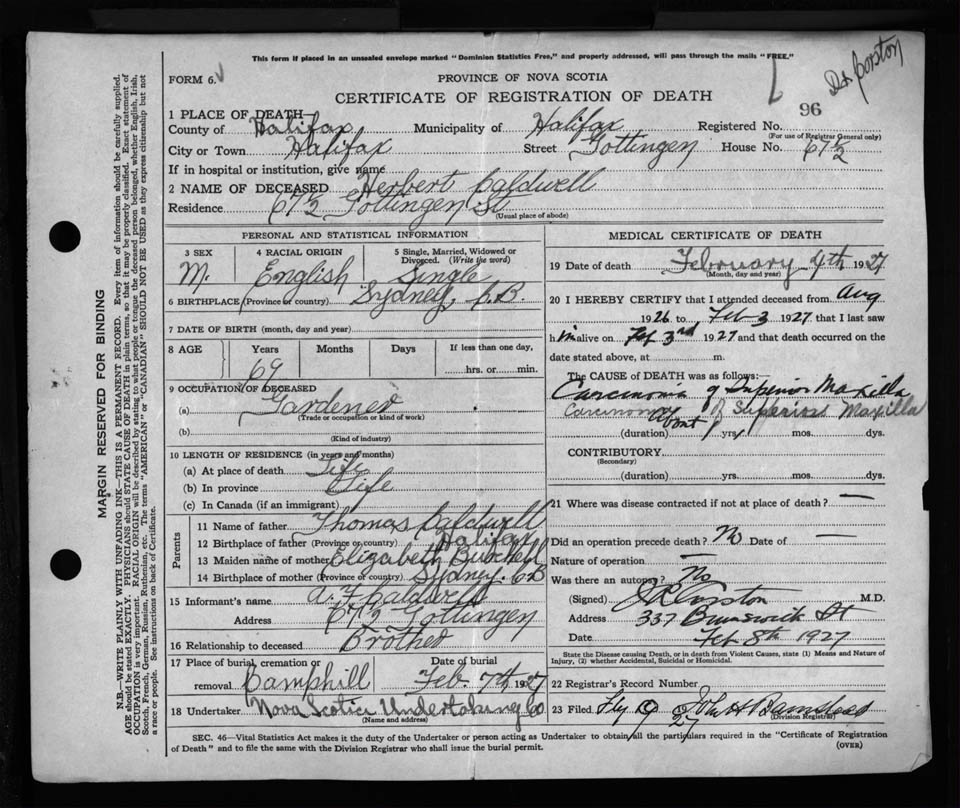 This form if placed in an unsealed envelope marked "Dominion Statistics Free," and properly addressed, will pass through the mails "FREE."
Dr Corston
FORM 6.
PROVINCE OF NOVA SCOTIA
CERTIFICATE OF REGISTRATION OF DEATH
96
1 PLACE OF DEATH
County of Halifax Municipality of Halifax Registered No.
(For use of Registrar General only)
City or Town Halifax Street Gottingen House No. 67½
If in hospital or institution, give name
2 NAME OF DECEASED Herbert Caldwell
Residence 67½ Gottingen St
(Usual place of abode)
PERSONAL AND STATISTICAL INFORMATION
3 SEX 4 RACIAL ORIGIN 5 Single, Married, Widowed or Divorced. (Write the word)
M. English Single
6 BIRTHPLACE (Province or country) Sydney, C.B.
7 DATE OF BIRTH (month, day and year)
8 AGE Years Months Days If less than one day,
69 hrs. or min.
9 OCCUPATION OF DECEASED
(a) Gardener
(Trade or occupation or kind of work)
(b)
(Kind of industry)
10 LENGTH OF RESIDENCE (in years and months)
(a) At place of death Life
(b) In province Life
(c) In Canada (if an immigrant)
Parents
11 Name of father Thomas Caldwell
12 Birthplace of father (Province or country) Halifax
13 Maiden name of mother Elizabeth
14 Birthplace of mother (Province or country) Sydney. CB
15 Informant's name A. F Caldwell
Address 67½ Gottingen
16 Relationship to deceased Brother
17 Place of burial, cremation or removal Camphill Date of burial Feb. 7th, 1927
18 Undertaker Nova Scotia Undertaking Co
(Name and address)
MEDICAL CERTIFICATE OF DEATH
19 Date of death February 4th 1927
(Month, day and year)
20 I HEREBY CERTIFY that I attended deceased from Aug
1926 to Feb 3 1927 that I last saw
h im alive on Feb 3rd 1927 and that death occurred on the
date stated above, at m.
The CAUSE of DEATH was as follows:
Carcinoma of Superior Maxilla
Carcinoma of Superior Maxilla
About
(duration) 1 yrs. mos. dys.
CONTRIBUTORY
(Secondary)
(duration) yrs. mos. dys.
21 Where was disease contracted if not at place of death? —
Did an operation precede death? No Date of —
Nature of operation —
Was there an autopsy? No
(Signed) J R Corston M.D.
Address 337 Brunswick St
Date Feb 8th 1927
State the Disease causing Death, or in death from Violent Causes, state (1) Means and Nature of Injury, (2) whether Accidental, Suicidal or Homicidal.
22 Registrar's Record Number
23 Filed 9 27 John H Barnstead
(Division Registrar)
SEC. 46—Vital Statistics Act makes it the duty of the Undertaker or person acting as Undertaker to obtain all the particulars required in the "Certificate of Registration
of Death" and to file the same with the Division Registrar who shall issue the burial permit.
(OVER)
MARGIN RESERVED FOR BINDING
N.B.—WRITE PLAINLY WITH UNFADING INK—THIS IS A PERMANENT RECORD. Every item of information should be carefully supplied.
AGE should be stated EXACTLY. PHYSICIANS should STATE CAUSE OF DEATH in plain terms, so that it may be properly classified. Exact statement of
OCCUPATION is very important. RACIAL ORIGIN will be described by stating to what people or tongue the deceased person belonged, whether English, Irish,
Scotch, French, German, Russian, Ruthenian, etc. The terms "AMERICAN" or "CANADIAN" SHOULD NOT BE USED as they express citizenship but not
a race or people. See instructions on back of Certificate.